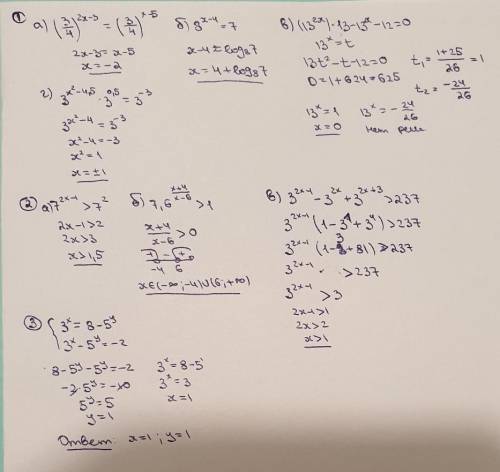 ① а) (3/4)^(2x-3) = (3/4)^(x-5)
2x-3 = x-5
x = -2
б) 8^(x-4) = 7
x-4 = log₈7
x = 4 + log₈7
в) (13^(2x)) · 13 - 13^x - 12 = 0
13^x = t
13t² - t - 12 = 0
D = 1 + 624 = 625
t₁ = (1+25)/26 = 1
t₂ = -24/26
13^x = 1    13^x = -24/26
x = 0    нет реш
г) 3^(x²-4,5) · 3^(0,5) = 3^(-3)
3^(x²-4) = 3^(-3)
x² - 4 = -3
x² = 1
x = ±1
② а) 7^(2x-1) > 7²
2x-1 > 2
2x > 3
x > 1,5
б) 7,6^((x+4)/(x-6)) > 1
(x+4)/(x-6) > 0
+ - +
-4 6
x∈(-∞; -4)∪(6; +∞)
в) 3^(2x-1) - 3^(2x) + 3^(2x+3) > 237
3^(2x-1) (1 - 3¹ + 3⁴) > 237
3^(2x-1) (1 - 3 + 81) > 237
3^(2x-1) · > 237
3^(2x-1) > 3
2x-1 > 1
2x > 2
x > 1
③ { 3^x = 8 - 5^y
3^x - 5^y = -2
8 - 5^y - 5^y = -2
-2·5^y = -10
5^y = 5
y = 1
3^x = 8 - 5
3^x = 3
x = 1
Ответ: x = 1; y = 1